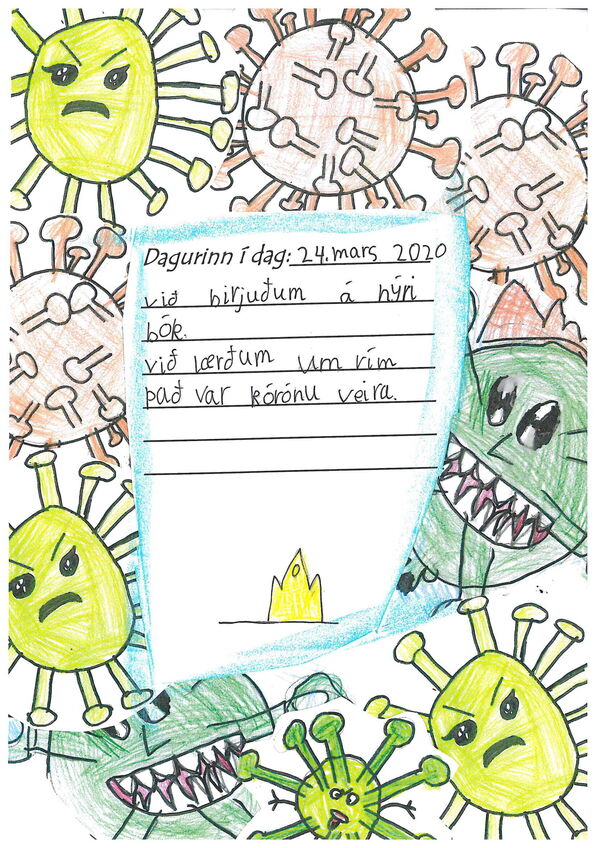 Dagurinn í dag: 24. mars 2020
við birjuðum á nýri
bók.
við lærðum um rím
það var kórónu veira.